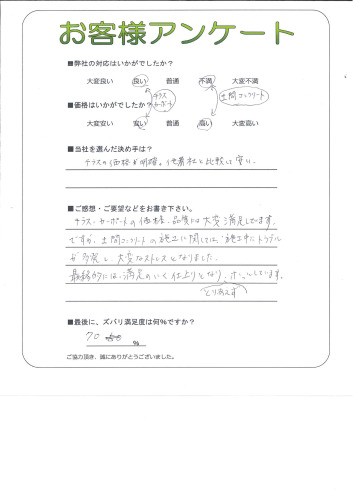 お客様アンケート
■弊社の対応はいかがでしたか？
大変良い 良い 普通 不満 大変不満
テラス カーポート
土間コンクリート
■価格はいかがでしたか？
大変安い 安い 普通 高い 大変高い
■当社を選んだ決め手は？
テラスの価格が明確。他業社と比較して安い。
■ご感想・ご要望などをお書き下さい。
テラス・カーポートの価格、品質には大変満足しています。
ですが、土間コンクリートの施工に関しては、施工中にトラブル
が多発し、大変なストレスとなりました。
最終的には、満足のいく仕上りとなり、ホッとしています。
とりあえず
■最後に、ズバリ満足度は何%ですか？
70 %
ご協力頂き、誠にありがとうございました。